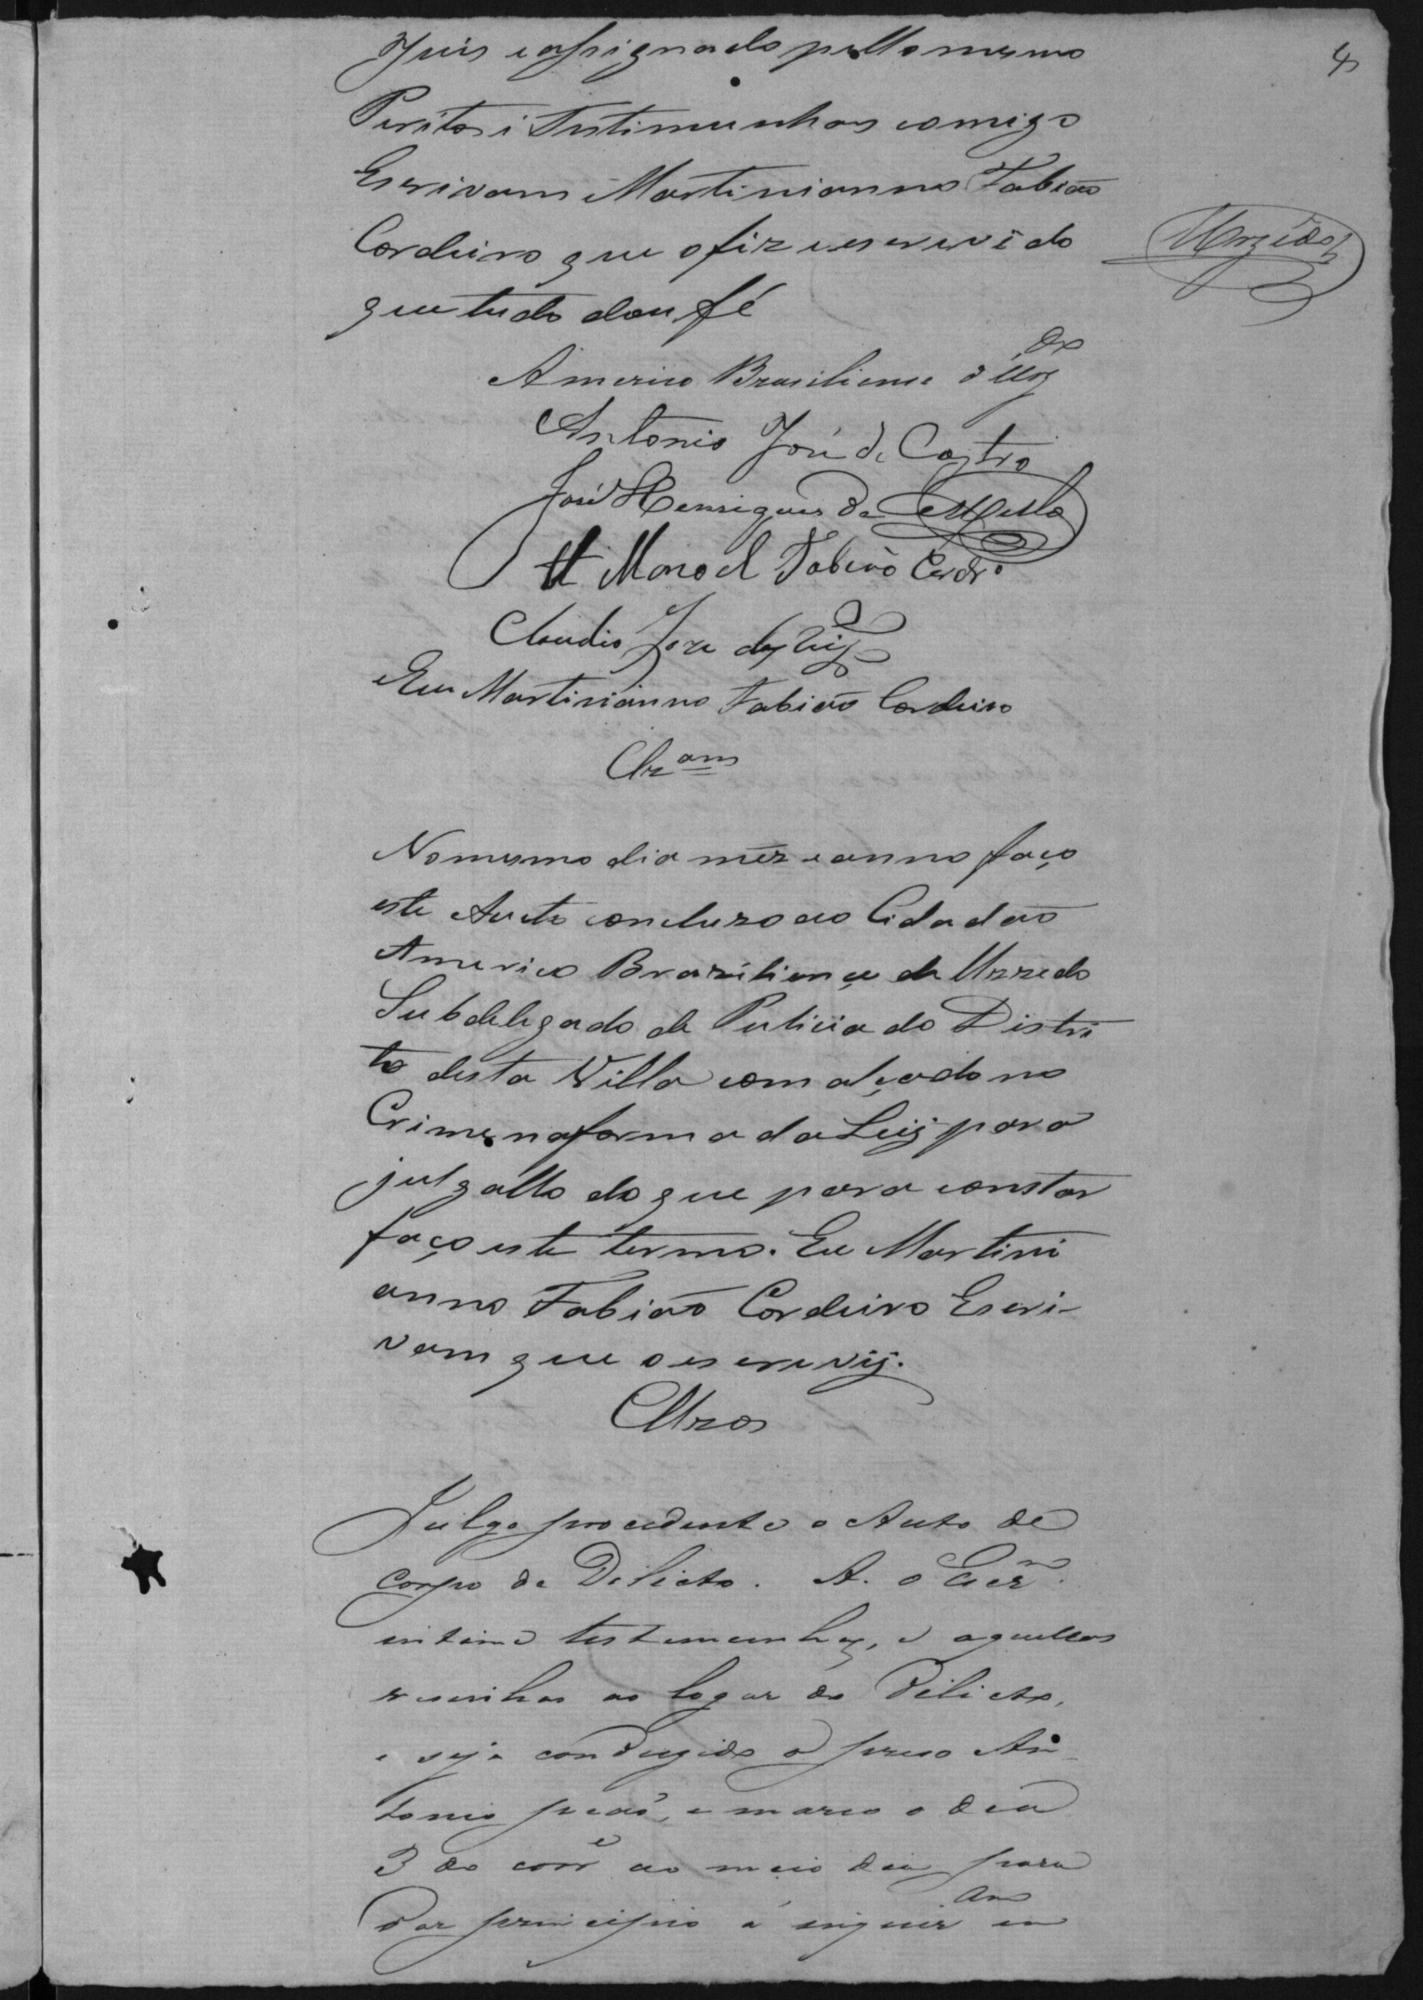 4
Juis e assignado pello mesmo
Peritos i Testimunhas comigo
Escrivam Martinianno Fabiaõ
Cordeiro que o fiz e escrevi do
que tudo dou fé
Americo Brasiliense d'
Antonio José de Castro
José Henriques de Mello
Manoel Fabiaõ Cordrº
Claudio Jose
Eu Martinianno Fabiaõ Cordeiro
Clzam
No mesmo dia mêz e anno faço
este Auto concluzo ao Cidadaõ
Americo Braziliençe de Uzzedo
Subdelegado de Pulicia do Distri
to desta Villa com alçada no
Crime na forma da Leij para
julgallo do que para constar
faço este termo. Eu Martini
anno Fabiaõ Cordeiro Escri-
vam que o escrevij.
Clzos
Julgo procedente o Auto de
corpo de Delicto. A. o Escrm.
intime testemunhas, e aquellas
vesinhas ao logar do Delicto,
e seja condusido o preso An
tonio , e marco o dia
3 do corre ao meio dia para
dar principio á inquiram em